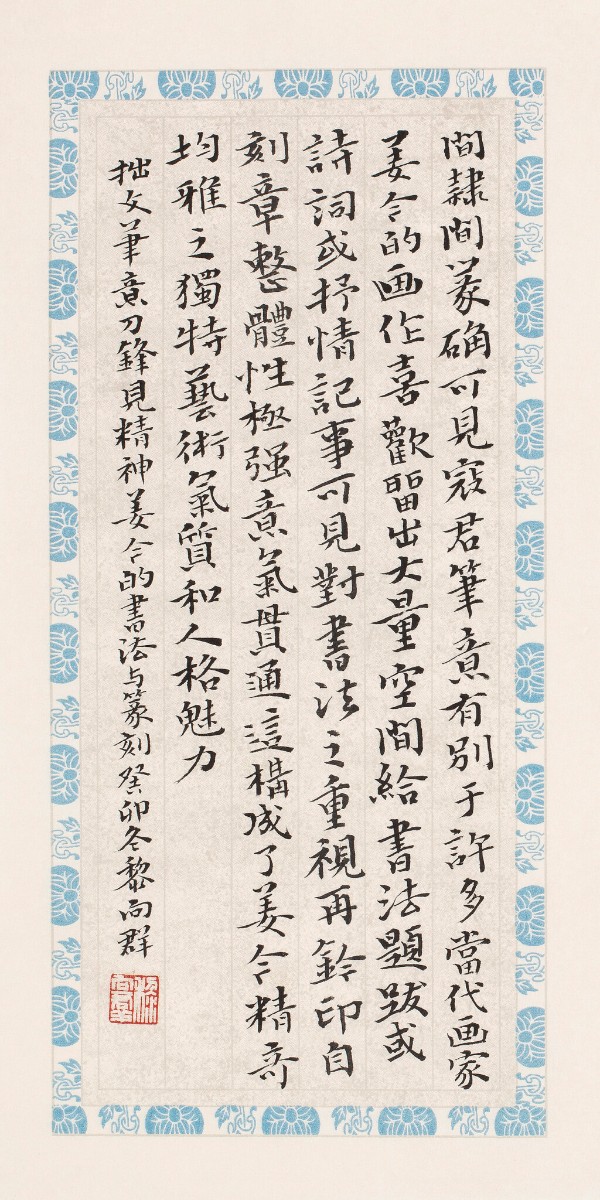 間隸間篆确可見寇君筆意有别于許多當代画家
姜今的画作喜歡留出大量空間給書法題跋或
詩詞或抒情記事可見對書法之重視再鈐印自
刻章整體性極强意氣貫通這構成了姜今精奇
均雅之獨特藝術氣質和人格魅力
拙文筆意刀鋒見精神姜今的書法与篆刻癸卯冬黎向群